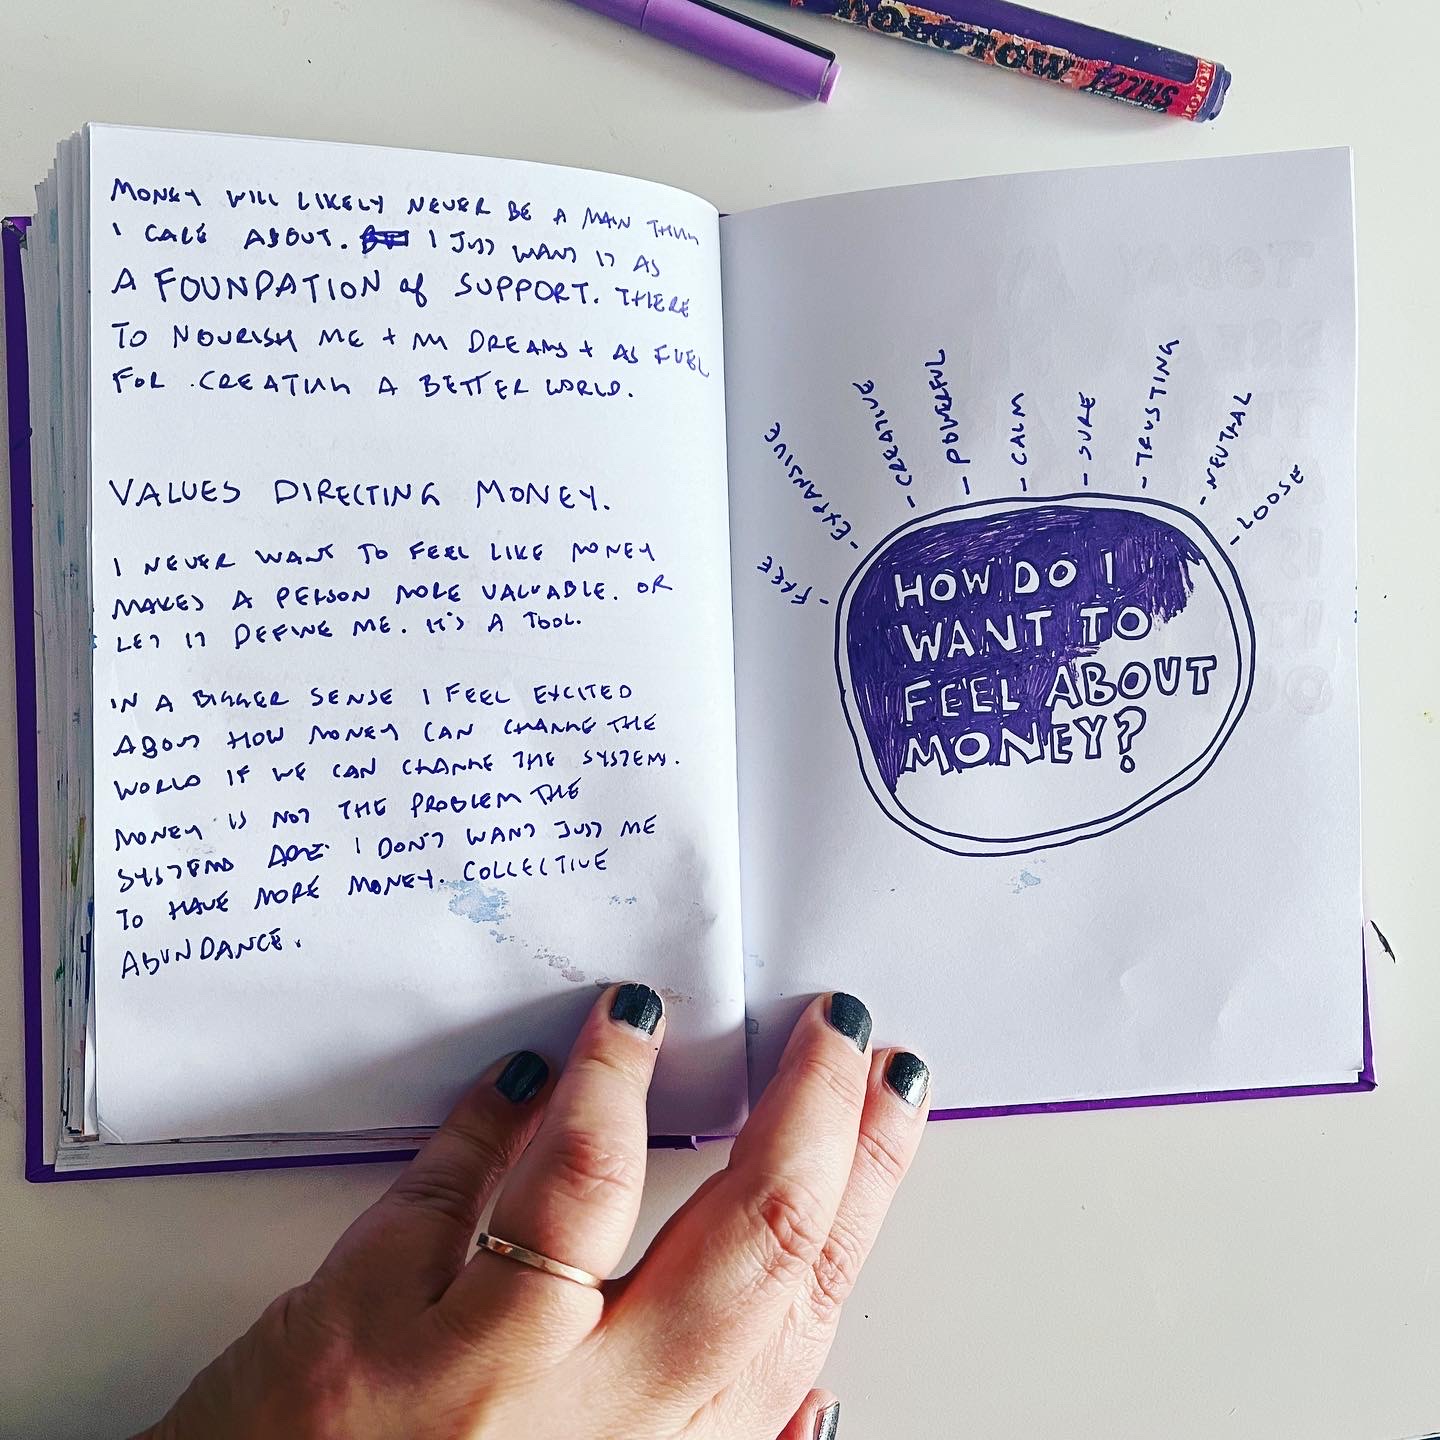 MONEY WILL LIKELY NEVER BE A MAIN THING
I CARE ABOUT. I JUST WANT IT AS
A FOUNDATION of SUPPORT. THERE
TO NOURISH ME + MY DREAMS + AS FUEL
FOR CREATING A BETTER WORLD.
VALUES DIRECTING MONEY.
I NEVER WANT TO FEEL LIKE MONEY
MAKES A PERSON MORE VALUABLE. OR
LET IT DEFINE ME. IT'S A TOOL.
IN A BIGGER SENSE I FEEL EXCITED
ABOUT HOW MONEY CAN CHANGE THE
WORLD IF WE CAN CHANGE THE SYSTEMS.
MONEY IS NOT THE PROBLEM THE
SYSTEMS ARE. I DON'T WANT JUST ME
TO HAVE MORE MONEY. COLLECTIVE
ABUNDANCE.
FREE
EXPANSIVE
CREATIVE
POWERFUL
CALM
SURE
TRUSTING
NEUTRAL
LOOSE
HOW DO I
WANT TO
FEEL ABOUT
MONEY?
MOLOTOW